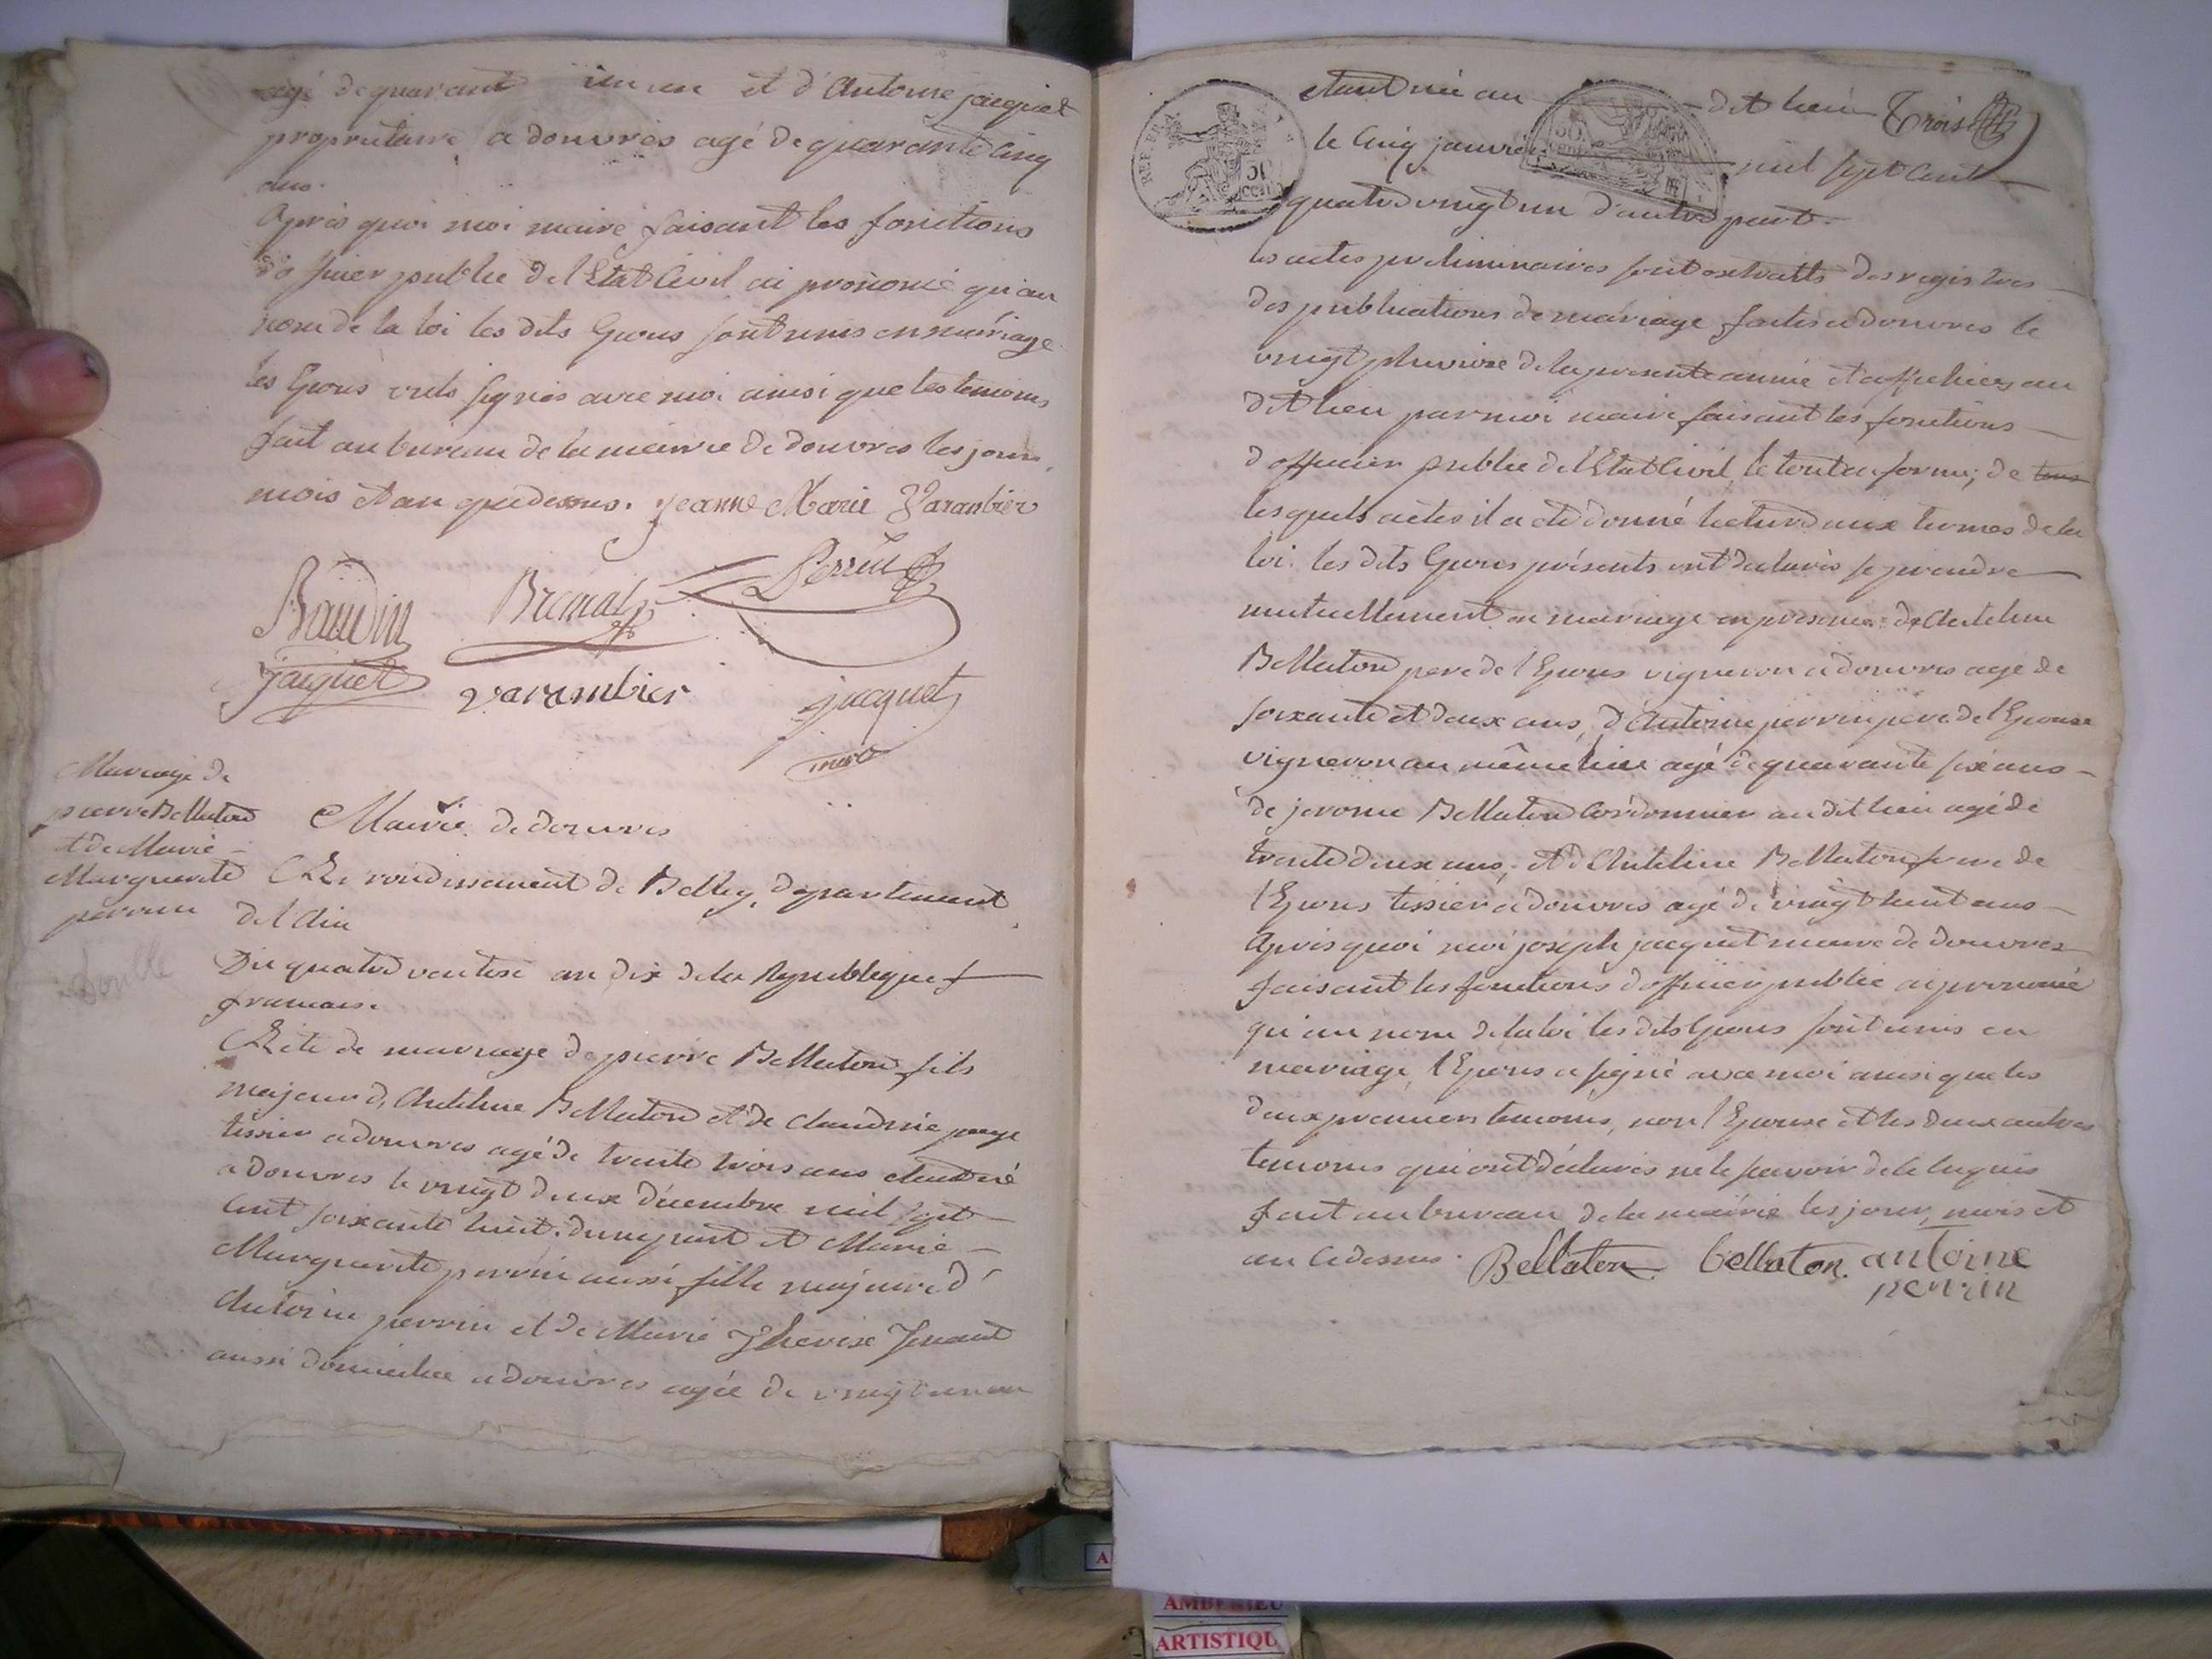 agé de quarant un an et d'Antoine jacquet
propriétaire a douvres agé de quarante cinq
ans.
Après quoi moi maire faisant les fonctions
d'officier public de l'Etat Civil ai prononcé qu'au
nom de la loi les dits Epous sont unis en mariage
les Epous onts signés avec moi ainsi que les temoins
fait au bureau de la mairie de douvres les jour,
mois et an que dessus. Jeanne Marie Varambier
Baudin Bremat Perrin
jacquet varambier jacquet
maire
Mariage de
pierre Bellaton
et de Marie
Marguerite
perrin
double
Mairie de douvres
Arrondissement de Belley, departement
de l'Ain
Du quatre ventose an dix de la Republique f
francaise.
Acte de mariage de pierre Bellaton fils
majeur d'Anthelme Bellaton et de Claudine
tissier a douvres agé de trente trois ans etant né
a douvres le vingt deux décembre mil sept
cent soixante huit. d'une part et Marie
Marguerite perrin aussi fille majeure d'
Antoine perrin et de Marie Therese
aussi domiciliée a douvres agée de vingt un an
etant née au dit lieu Trois
le Cinq janvier mil sept cent
quatre vingt un d'autre part.
REP. FRA. 50
les actes preliminaires sont extraits des registres
des publications de mariage faites a douvres le
vingt pluviose de la presente année et affichées au
dit lieu par moi maire faisant les fonctions
d'officier public de l'Etat Civil, le tout en forme; de tous
lesquels actes il a été donné lecture aux termes de la
loi. les dits Epous présents ont declarés se prendre
mutuellement en mariage en presence d'Anthelme
Bellaton pere de l'Epous vigneron a douvres agé de
soixante et deux ans, d'Antoine perrin pere de l'Epouse
vigneron au même lieu agé de quarante six ans
de jerome Bellaton Cordonnier au dit lieu agé de
trente deux ans, et d'Anthelme Bellaton frere de
l'Epous tissier a douvres agé de vingt huit ans
Après quoi moi joseph jacquet maire de douvres
faisant les fonctions d'officier public ai prononcé
qu'au nom de la loi les dits Epous sont unis en
mariage, l'Epous a signé avec moi ainsi que les
deux premiers temoins, non l'Epouse et les deux autres
temoins qui ont déclarés ne le savoir de ce enquis
fait au bureau de la mairie les jour, mois et
an cidessus. Bellaton bellaton. antoine
perrin
AMBERIEU
ARTISTIQU